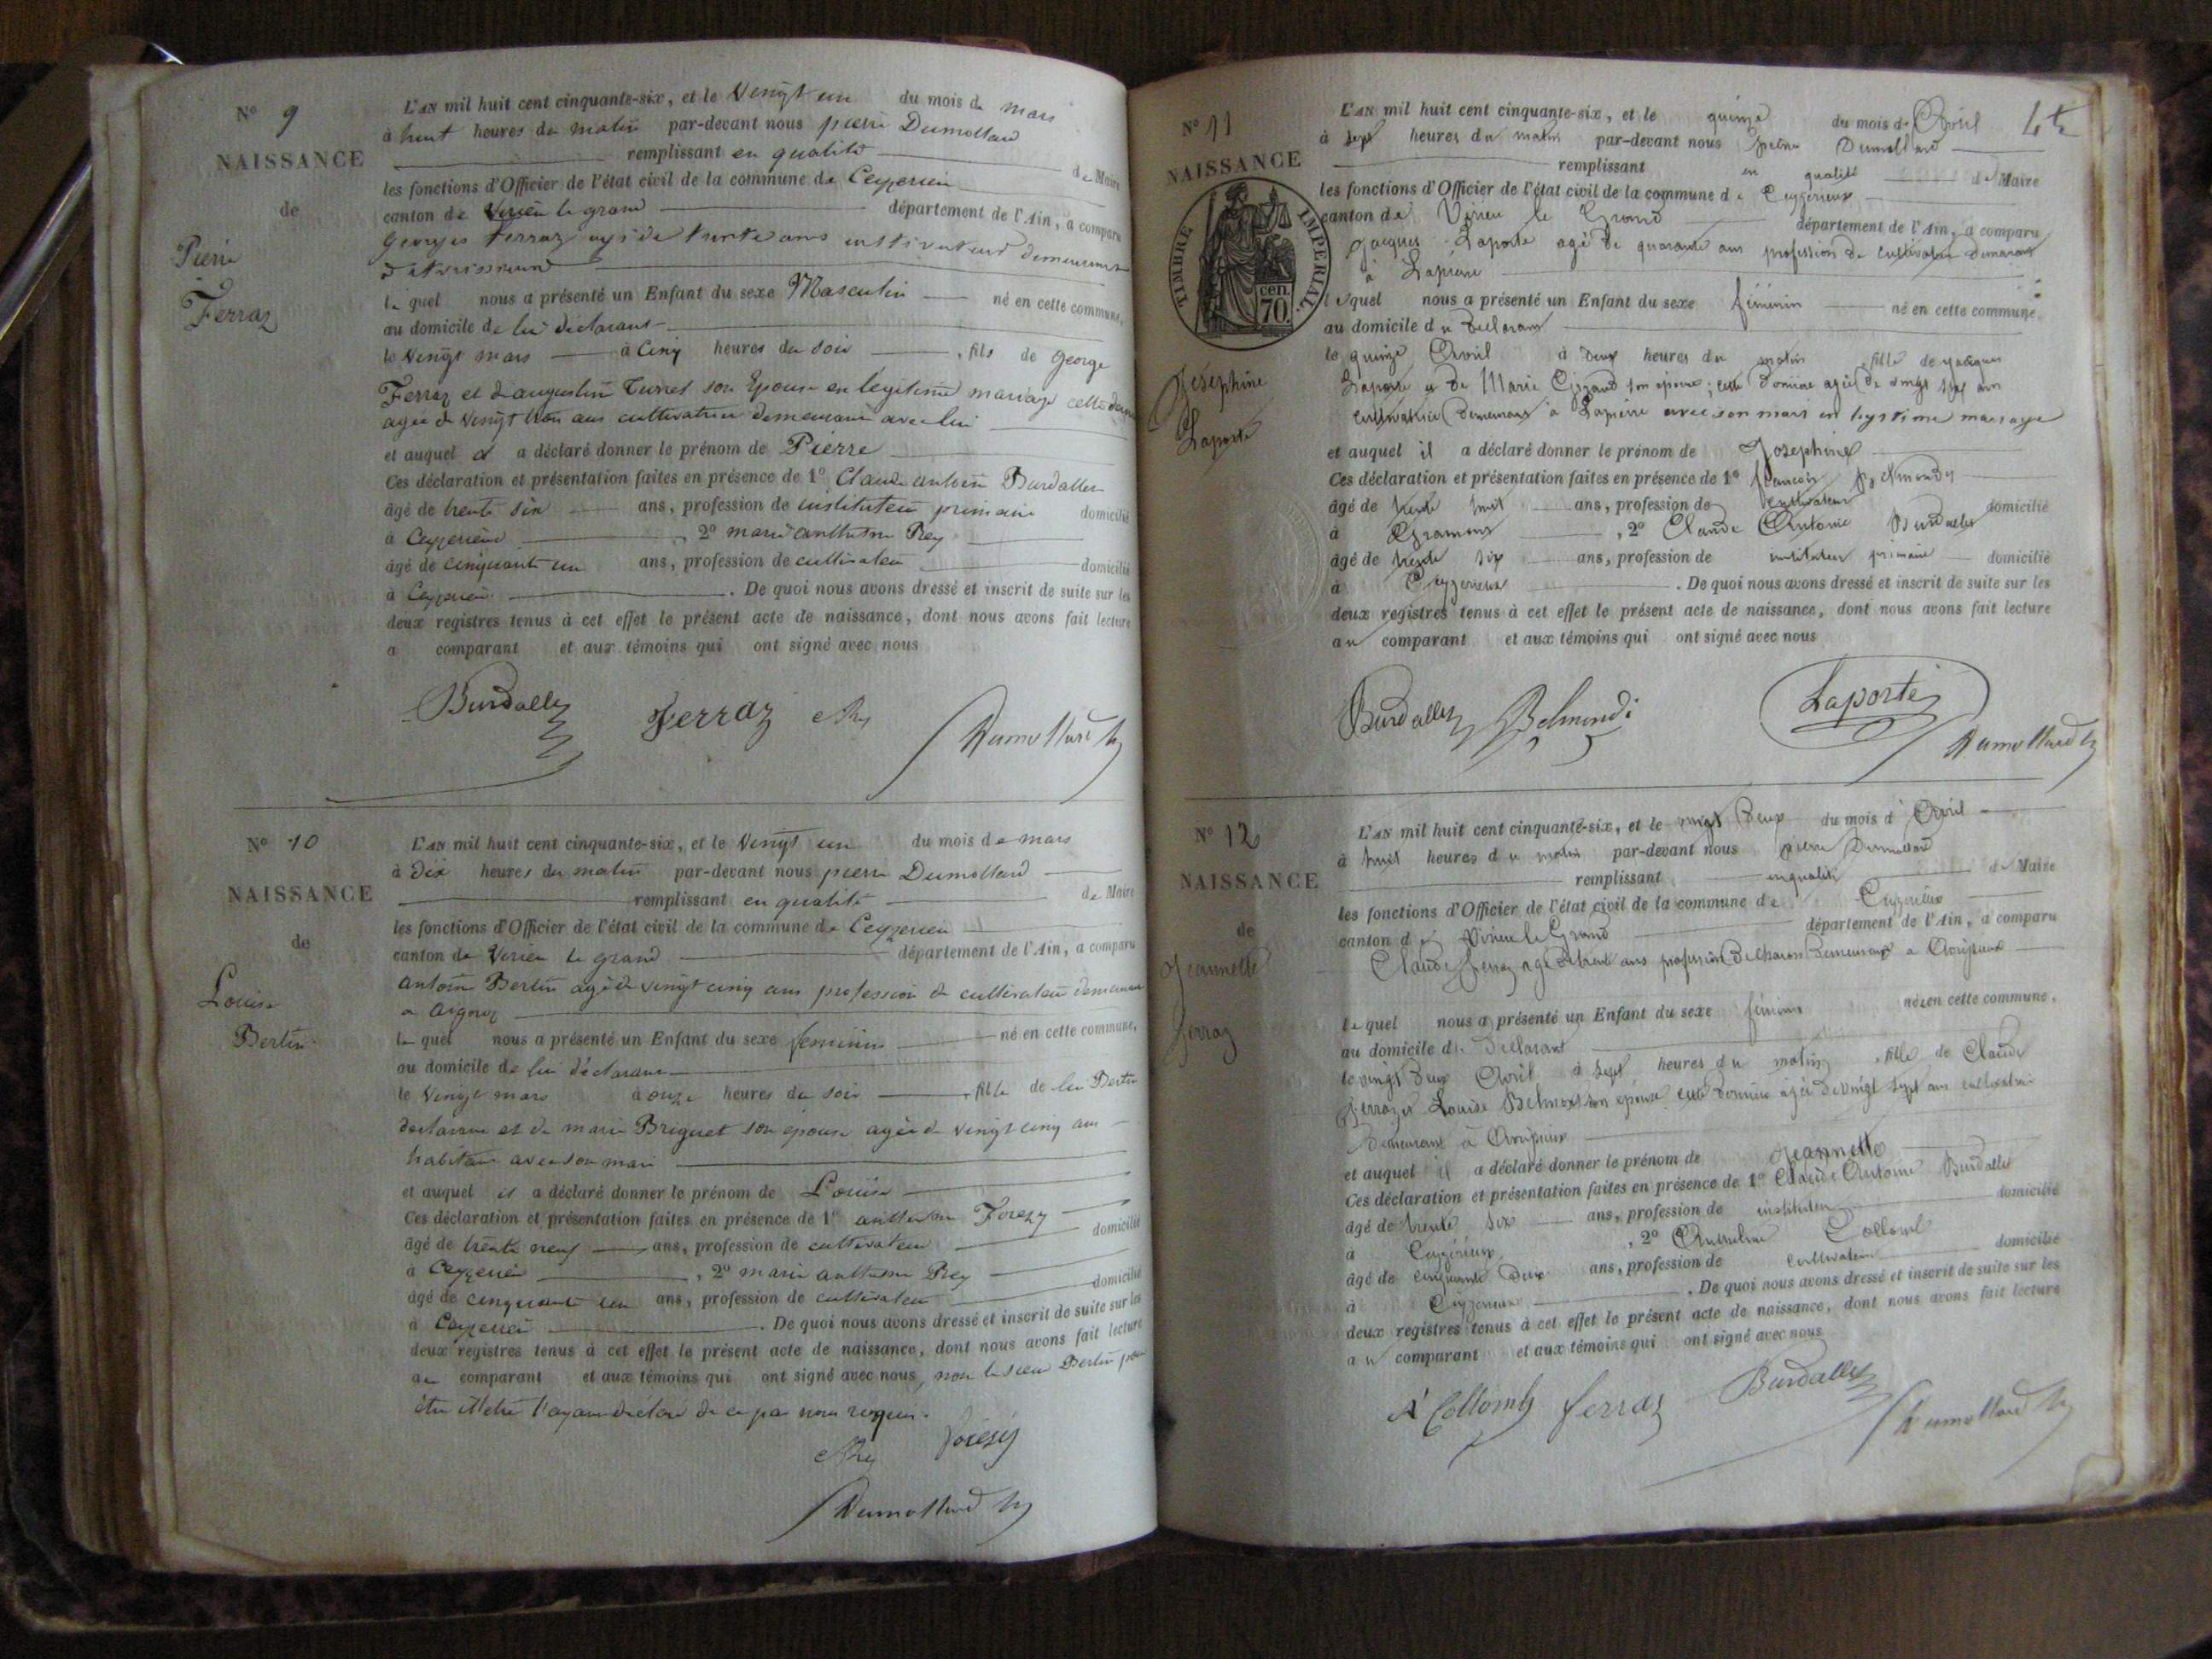 N° 9
NAISSANCE
de
Pierre
Ferraz
L'AN mil huit cent cinquante-six, et le Vengt un du mois de mars
à huit heures du matin par-devant nous pierre Dumollard
remplissant en qualité de Maire
les fonctions d'Officier de l'état civil de la commune de Ceyzerieu
canton de Virieu le grand département de l'Ain, a comparu
Georges Ferraz agé de trente ans cultivateur demeurant
le quel nous a présenté un Enfant du sexe Masculin né en cette commune,
au domicile de lui déclarant
le Vengt mars à Cinq heures du soir , fils de George
Ferraz et d'augustine son Epouse en légitime mariage cette
agée de Vengt trois ans cultivatrice demeurant avec lui
et auquel il a déclaré donner le prénom de Pierre
Ces déclaration et présentation faites en présence de 1° Claude antoine Burdallet
âgé de trente six ans, profession de instituteur primaire domicilié
à Ceyzerieu , 2° marie anthelme Rey
âgé de cinquante un ans, profession de cultivateur domicilié
à Ceyzerieu . De quoi nous avons dressé et inscrit de suite sur les
deux registres tenus à cet effet le présent acte de naissance, dont nous avons fait lecture
a comparant et aux témoins qui ont signé avec nous
Burdallet Ferraz Rey
Dumollard
N° 10
NAISSANCE
de
Louise
Bertin
L'AN mil huit cent cinquante-six, et le Vengt un du mois de mars
à Dix heures du matin par-devant nous pierre Dumollard
remplissant en qualité de Maire
les fonctions d'Officier de l'état civil de la commune de Ceyzerieu
canton de Virieu le grand département de l'Ain, a comparu
antoine Bertin agé de vengt cinq ans profession de cultivateur demeurant
a Aignoz
le quel nous a présenté un Enfant du sexe feminin né en cette commune,
au domicile de lui déclarant
le Vengt mars à onze heures du soir , fille de lui Bertin
declarant et de marie Briguet son épouse agée de vengt cinq ans
habitant avec son mari
et auquel il a déclaré donner le prénom de Louise
Ces déclaration et présentation faites en présence de 1° anthelme
âgé de trente neuf ans, profession de cultivateur domicilié
à Ceyzerieu , 2° marie anthelme Rey
âgé de cinquante un ans, profession de cultivateur domicilié
à Ceyzerieu . De quoi nous avons dressé et inscrit de suite sur les
deux registres tenus à cet effet le présent acte de naissance, dont nous avons fait lecture
au comparant et aux témoins qui ont signé avec nous, non le sieur Bertin pour
être illetré l'ayant déclaré de ce par nous requis.
Rey
Dumollard
4
N° 11
NAISSANCE
TIMBRE IMPERIAL
70 cen.
Joséphine
Laporte
L'AN mil huit cent cinquante-six, et le quinze du mois de Avril
à sept heures du matin par-devant nous pierre Dumollard
remplissant en qualité de Maire
les fonctions d'Officier de l'état civil de la commune de Ceyzérieux
canton de Virieu le Grand département de l'Ain, a comparu
Jacques Laporte agé de quarante ans profession de cultivateur demeurant
à Lapierre
lequel nous a présenté un Enfant du sexe féminin né en cette commune.
au domicile du declarant
le quinze Avril à deux heures du matin , fille de Jacques
Laporte et de Marie son épouse; cette dernière agée de vingt ans
cultivatrice demeurant à Lapierre avec son mari en legitime mariage
et auquel il a déclaré donner le prénom de Josephine
Ces déclaration et présentation faites en présence de 1° françois
âgé de trente huit ans, profession de cultivateur domicilié
à , 2° Claude Antoine Burdallet
âgé de trente six ans, profession de instituteur primaire domicilié
à Ceyzerieux . De quoi nous avons dressé et inscrit de suite sur les
deux registres tenus à cet effet le présent acte de naissance, dont nous avons fait lecture
au comparant et aux témoins qui ont signé avec nous
Burdallet Belmondi Laporte
Dumollard
N° 12
NAISSANCE
de
Jeannette
Ferraz
L'AN mil huit cent cinquante-six, et le vingt deux du mois d'Avril
à huit heures du matin par-devant nous pierre Dumollard
remplissant en qualité de Maire
les fonctions d'Officier de l'état civil de la commune de Ceyzérieux
canton de Virieu le Grand département de l'Ain, a comparu
Claude Ferraz agé de trente ans profession de charon demeurant a
lequel nous a présenté un Enfant du sexe féminin née en cette commune,
au domicile du declarant
le vingt deux Avril à sept heures du matin , fille de Claude
Ferraz et Louise son épouse cette dernière agée de vingt sept ans cultivatrice
demeurant à
et auquel il a déclaré donner le prénom de Jeannette
Ces déclaration et présentation faites en présence de 1° Claude Antoine Burdallet
âgé de trente six ans, profession de instituteur domicilié
à Ceyzérieux , 2° Anthelme Collomb
âgé de cinquante deux ans, profession de cultivateur domicilié
à Ceyzerieux . De quoi nous avons dressé et inscrit de suite sur les
deux registres tenus à cet effet le présent acte de naissance, dont nous avons fait lecture
au comparant et aux témoins qui ont signé avec nous
A Collomb ferraz Burdallet
Dumollard